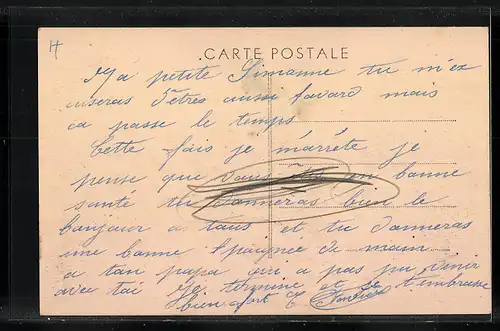 H
CARTE POSTALE
Ma petite Simanne tu m'ex
cuseras d'êtres aussi bavard mais
ca passe le temps
Cette fois je m'arrête je
pense que vous en banne
santé tu danneras bien le
banjaur a taus et tu danneras
une banne de main
a tan papa qui a pas pu venir
avec tai Je termine et je t'embrasse
bien fort